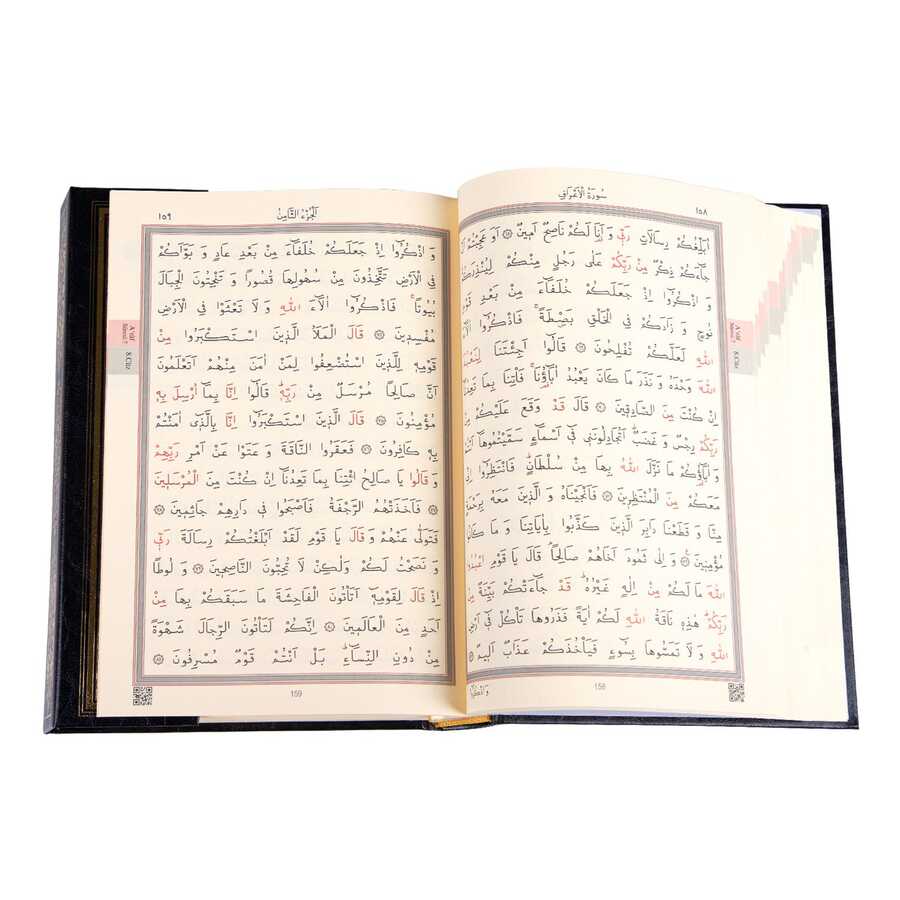 سُورَةُ الْاَعْرَافِ
١٥٨
اُبَلِّغُكُمْ رِسَالَاتِ رَبّ۪ي وَ اَنَا۬ لَكُمْ نَاصِحٌ اَم۪ينٌ ﴿٦٨﴾ اَوَ عَجِبْتُمْ
جَٓاءَكُمْ ذِكْرٌ مِنْ رَبِّكُمْ عَلٰى رَجُلٍ مِنْكُمْ لِيُنْذِرَكُمْ
وَ اذْكُرُٓوا اِذْ جَعَلَكُمْ خُلَفَٓاءَ مِنْ بَعْدِ قَوْمِ
نُوحٍ وَ زَادَكُمْ فِي الْخَلْقِ بَصْۣطَةًۚ فَاذْكُرُٓوا اٰلَٓاءَ
اللّٰهِ لَعَلَّكُمْ تُفْلِحُونَ ﴿٦٩﴾ قَالُٓوا اَجِئْتَنَا لِنَعْبُدَ
اللّٰهَ وَحْدَهُ وَ نَذَرَ مَا كَانَ يَعْبُدُ اٰبَٓاؤُ۬نَاۚ فَاْتِنَا بِمَا تَعِدُنَٓا
اِنْ كُنْتَ مِنَ الصَّادِق۪ينَ ﴿٧٠﴾ قَالَ قَدْ وَقَعَ عَلَيْكُمْ مِنْ
رَبِّكُمْ رِجْسٌ وَ غَضَبٌۜ اَتُجَادِلُونَن۪ي ف۪ٓي اَسْمَٓاءٍ سَمَّيْتُمُوهَٓا
وَ اٰبَٓاؤُ۬كُمْ مَا نَزَّلَ اللّٰهُ بِهَا مِنْ سُلْطَانٍۜ فَانْتَظِرُٓوا
مَعَكُمْ مِنَ الْمُنْتَظِر۪ينَ ﴿٧١﴾ فَاَنْجَيْنَاهُ وَ الَّذ۪ينَ مَعَهُ بِرَحْمَةٍ
مِنَّا وَ قَطَعْنَا دَابِرَ الَّذ۪ينَ كَذَّبُوا بِاٰيَاتِنَا وَ مَا كَانُوا
مُؤْمِن۪ينَ۟ ﴿٧٢﴾ وَ اِلٰى ثَمُودَ اَخَاهُمْ صَالِحًاۢ قَالَ يَا قَوْمِ اعْبُدُوا
اللّٰهَ مَا لَكُمْ مِنْ اِلٰهٍ غَيْرُهُۜ قَدْ جَٓاءَتْكُمْ بَيِّنَةٌ مِنْ
رَبِّكُمْۜ هٰذِه۪ نَاقَةُ اللّٰهِ لَكُمْ اٰيَةً فَذَرُوهَا تَاْكُلْ ف۪ٓي اَرْضِ
اللّٰهِ وَ لَا تَمَسُّوهَا بِسُٓوءٍ فَيَاْخُذَكُمْ عَذَابٌ اَل۪يمٌ ﴿٧٣﴾
وَ اذْكُرُٓوا
158
A'râf
Sûresi 7
8.Cüz
اَلْجُزْءُ الثَّامِنُ
١٥٩
وَ اذْكُرُٓوا اِذْ جَعَلَكُمْ خُلَفَٓاءَ مِنْ بَعْدِ عَادٍ وَ بَوَّاَكُمْ
فِي الْاَرْضِ تَتَّخِذُونَ مِنْ سُهُولِهَا قُصُورًا وَ تَنْحِتُونَ الْجِبَالَ
بُيُوتًاۚ فَاذْكُرُٓوا اٰلَٓاءَ اللّٰهِ وَ لَا تَعْثَوْا فِي الْاَرْضِ
مُفْسِد۪ينَ ﴿٧٤﴾ قَالَ الْمَلَاُ الَّذ۪ينَ اسْتَكْبَرُوا مِنْ
قَوْمِه۪ لِلَّذ۪ينَ اسْتُضْعِفُوا لِمَنْ اٰمَنَ مِنْهُمْ اَتَعْلَمُونَ
اَنَّ صَالِحًا مُرْسَلٌ مِنْ رَبِّه۪ۜ قَالُٓوا اِنَّا بِمَٓا اُرْسِلَ بِه۪
مُؤْمِنُونَ ﴿٧٥﴾ قَالَ الَّذ۪ينَ اسْتَكْبَرُٓوا اِنَّا بِالَّذ۪ٓي اٰمَنْتُمْ
بِه۪ كَافِرُونَ ﴿٧٦﴾ فَعَقَرُوا النَّاقَةَ وَ عَتَوْا عَنْ اَمْرِ رَبِّهِمْ
وَ قَالُوا يَا صَالِحُ ائْتِنَا بِمَا تَعِدُنَٓا اِنْ كُنْتَ مِنَ الْمُرْسَل۪ينَ
﴿٧٧﴾ فَاَخَذَتْهُمُ الرَّجْفَةُ فَاَصْبَحُوا ف۪ي دَارِهِمْ جَاثِم۪ينَ ﴿٧٨﴾
فَتَوَلّٰى عَنْهُمْ وَ قَالَ يَا قَوْمِ لَقَدْ اَبْلَغْتُكُمْ رِسَالَةَ رَبّ۪ي
وَ نَصَحْتُ لَكُمْ وَلٰكِنْ لَا تُحِبُّونَ النَّاصِح۪ينَ ﴿٧٩﴾ وَ لُوطًا
اِذْ قَالَ لِقَوْمِه۪ٓ اَتَاْتُونَ الْفَاحِشَةَ مَا سَبَقَكُمْ بِهَا مِنْ
اَحَدٍ مِنَ الْعَالَم۪ينَ ﴿٨٠﴾ اِنَّكُمْ لَتَاْتُونَ الرِّجَالَ شَهْوَةً
مِنْ دُونِ النِّسَٓاءِۜ بَلْ اَنْتُمْ قَوْمٌ مُسْرِفُونَ ﴿٨١﴾
159
A'râf
Sûresi 7
8.Cüz